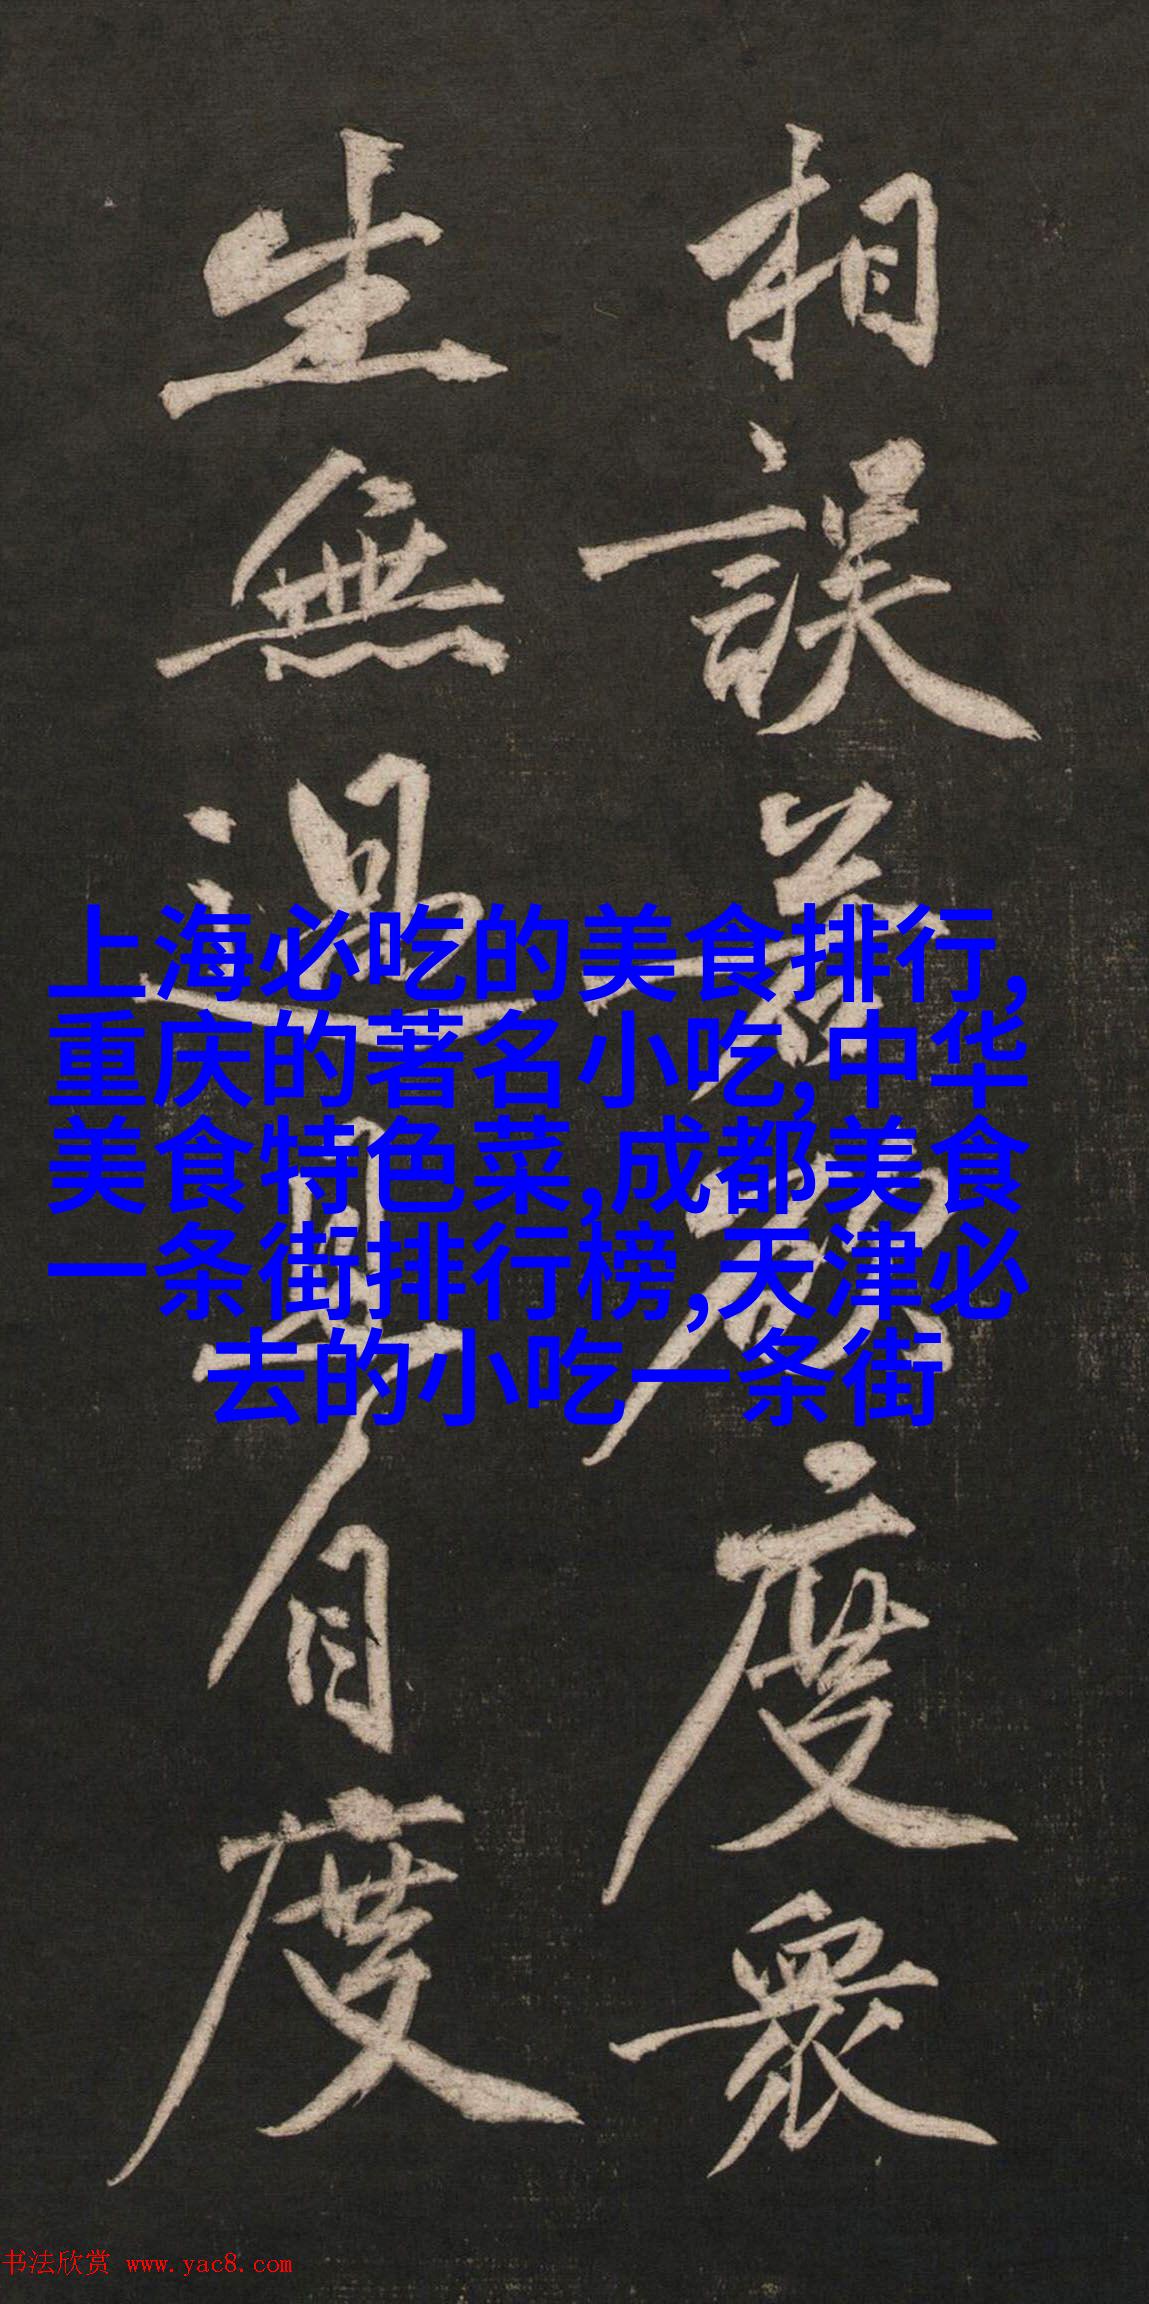 相誤若度衆
生無過且自度
上海必吃的美食排行,
重庆的著名小吃,中华
美食特色菜,成都美食
一条街排行榜,天津必
去的小吃一条街
书法欣赏 www.yac8.com